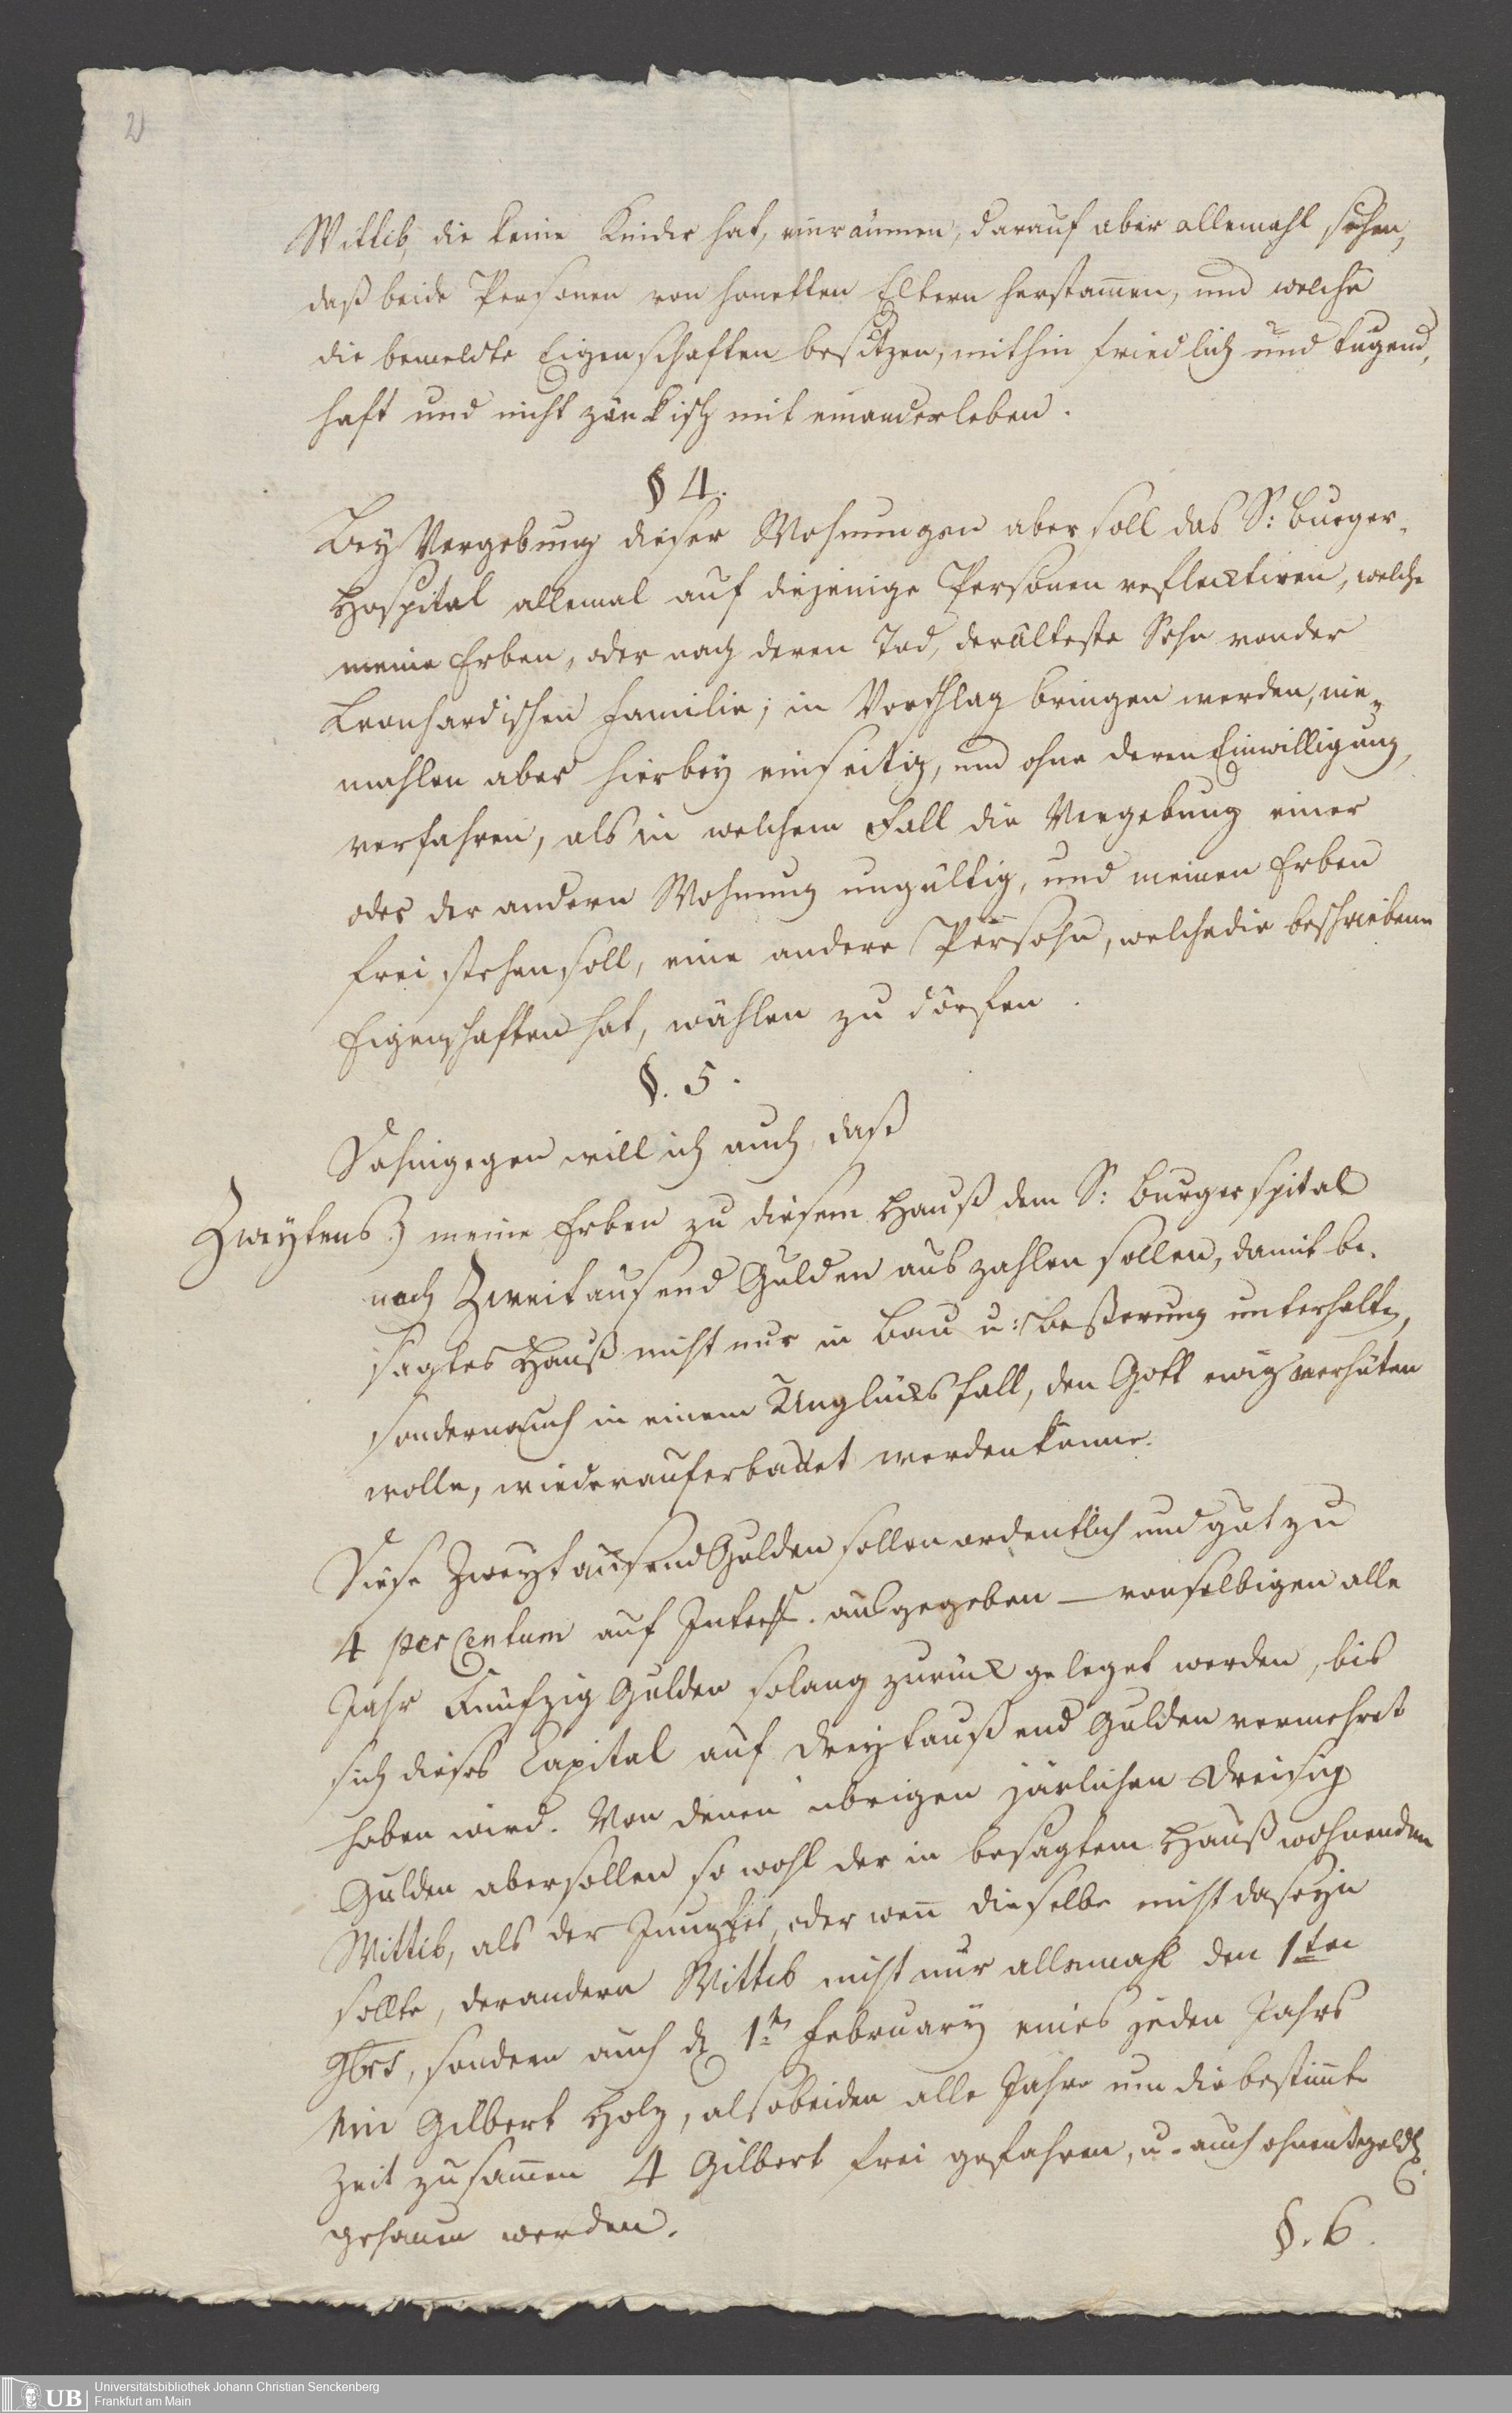 2
Wittib, die keine Kinder hat, einräumen, darauf aber allemahl sehen,
daß beide Personen von honetten Eltern herstam̅en, und welche
die bemeldte Eigenschaften besitzen, mithin friedlich und tugend,
haft und nicht zänkisch mit einander leben.
§ 4.
Bey Vergebung dieser Wohnungen aber soll das S: Burger-
Hospital allemal auf diejenige Personen reflecktiren, welche
meine Erben, oder nach deren Tod, der älteste Sohn von der
Leonhardischen Familie; in Vorschlag bringen werden, nie=
mahlen aber hierbey einseitig, und ohne deren Einwilligung,
verfahren, als in welchem Fall die Vergebung einer
oder der andern Wohnung ungültig, und meinen Erben
frei stehen soll, eine andere Persohn, welche die beschriebene
Eigenschaften hat, wählen zu dörfen.
§. 5.
Dahingegen will ich auch, daß
Zweytens.) meine Erben zu diesem Hauß dem S: Burgerspital
noch Zweitausend Gulden auszahlen sollen, damit be-
sagtes Hauß nicht nur in Bau u: Beßerung unterhalten,
sondern auch in einem Unglücksfall, den Gott ewig verhüten
wolle, wieder auferbauet werden könne.
Diese Zweytausend Gulden sollen ordentlich und gut zu
4 per Centum auf Interess. ausgegeben – von selbigen alle
Jahr Fünfzig Gulden solang zurück geleget werden, bis
sich dieses Capital auf Dreytaußend Gulden vermehret
haben wird. Von denen übrigen järlichen Dreisig
Gulden aber sollen so wohl der in besagtem Hauß wohnenden
Wittib, als der Jungfer, oder wen̅ dieselbe nicht da seyn
sollte, der andern Wittib nicht nur allemahl den 1ten
9brs, sondern auch d. 1ten February eines jeden Jahrs
ein Gilbert Holz, also beiden alle Jahre um die bestim̅te
Zeit zusam̅en 4 Gilbert frei gefahren, u. auch ohnentgeldl.
gehauen werden.
§. 6.
UB
Universitätsbibliothek Johann Christian Senckenberg
Frankfurt am Main